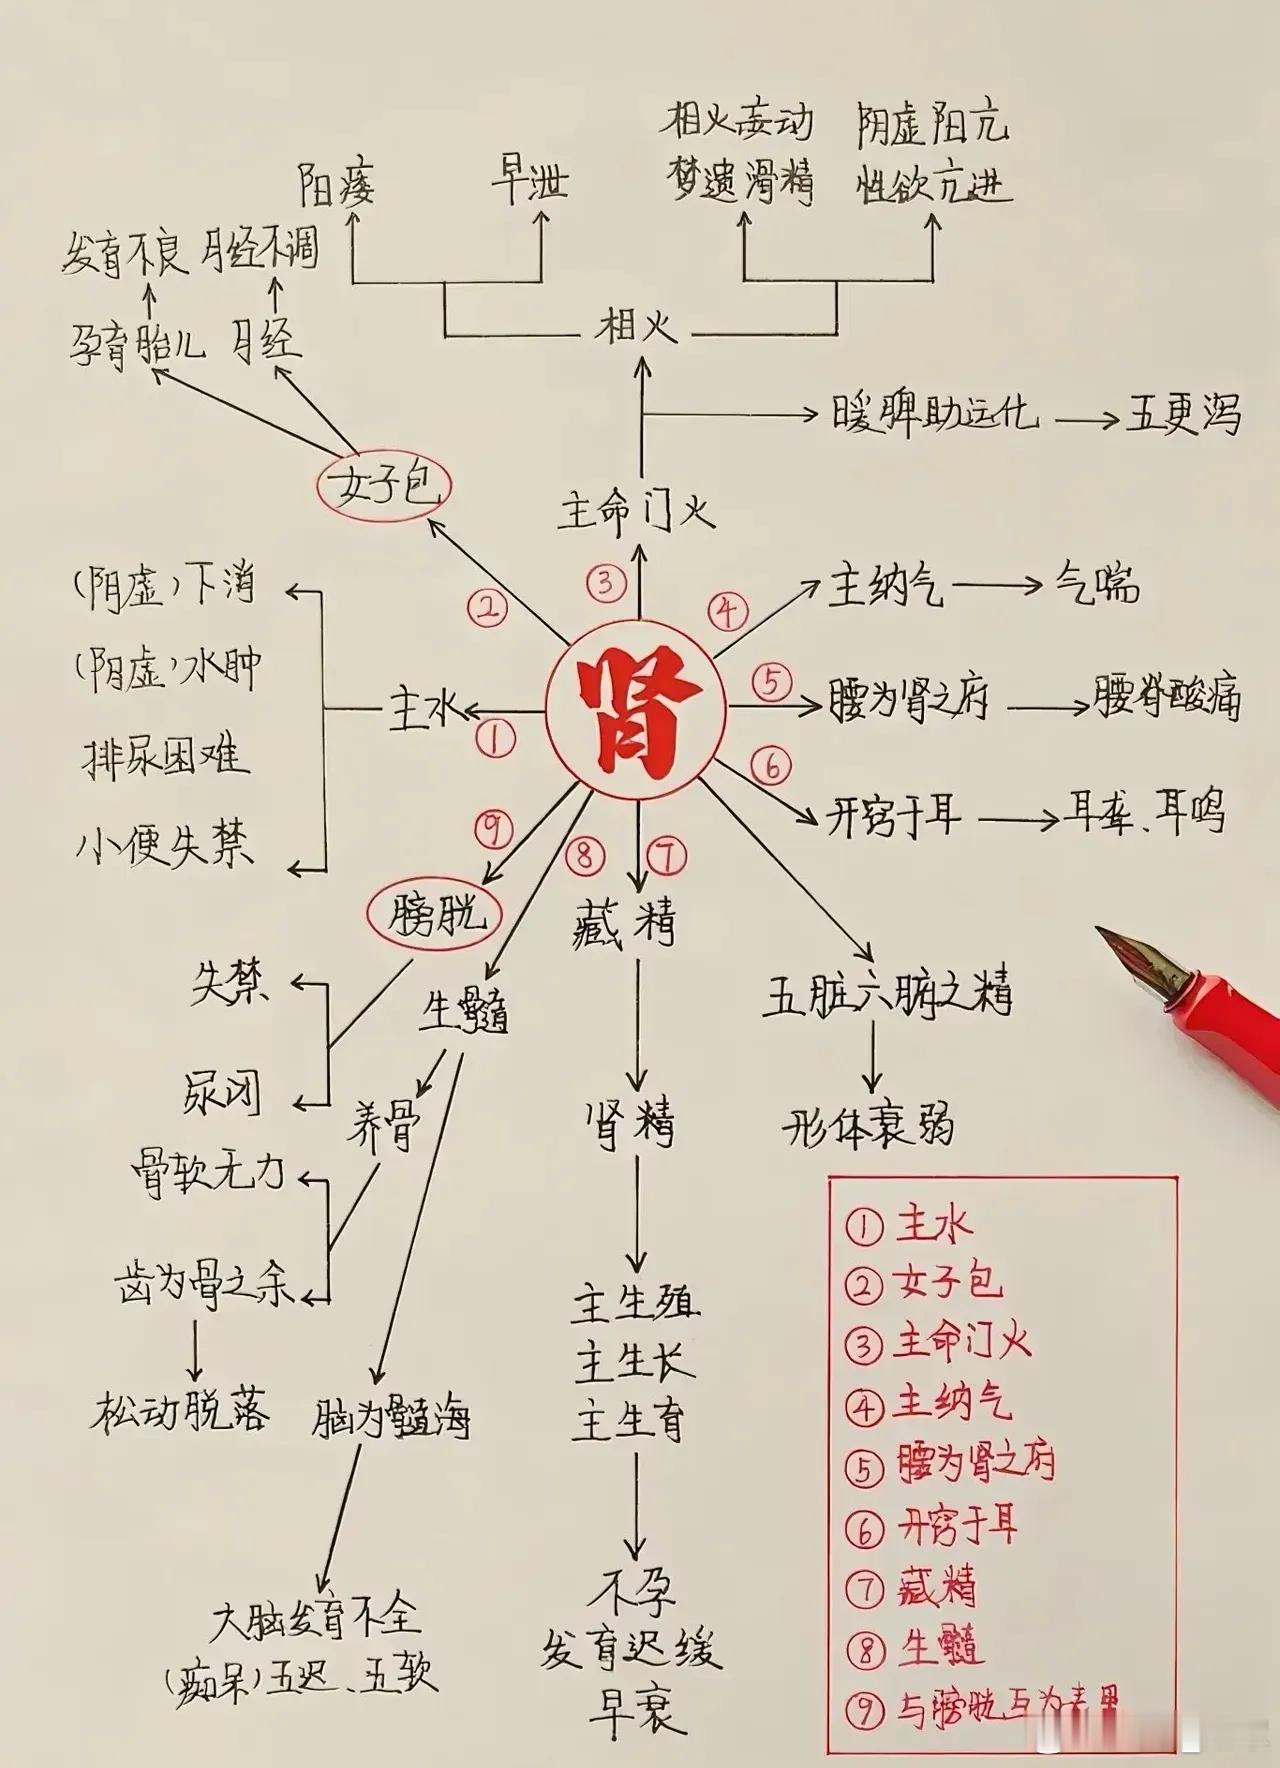 相火妄动
梦遗滑精
阴虚阳亢
性欲亢进
阳痿
早泄
发育不良
月经不调
孕育胎儿
月经
相火
暖脾助运化
五更泻
女子包
主命门火
(阴虚)下消
(阴虚)水肿
排尿困难
小便失禁
主水
①
②
③
④
⑤
⑥
⑦
⑧
⑨
肾
主纳气
气喘
腰为肾之府
腰脊酸痛
开窍于耳
耳聋、耳鸣
膀胱
藏精
失禁
尿闭
生髓
五脏六腑之精
形体衰弱
养骨
肾精
骨软无力
齿为骨之余
松动脱落
脑为髓海
主生殖
主生长
主生育
大脑发育不全
(痴呆)五迟、五软
不孕
发育迟缓
早衰
①主水
②女子包
③主命门火
④主纳气
⑤腰为肾之府
⑥开窍于耳
⑦藏精
⑧生髓
⑨与膀胱互为表里